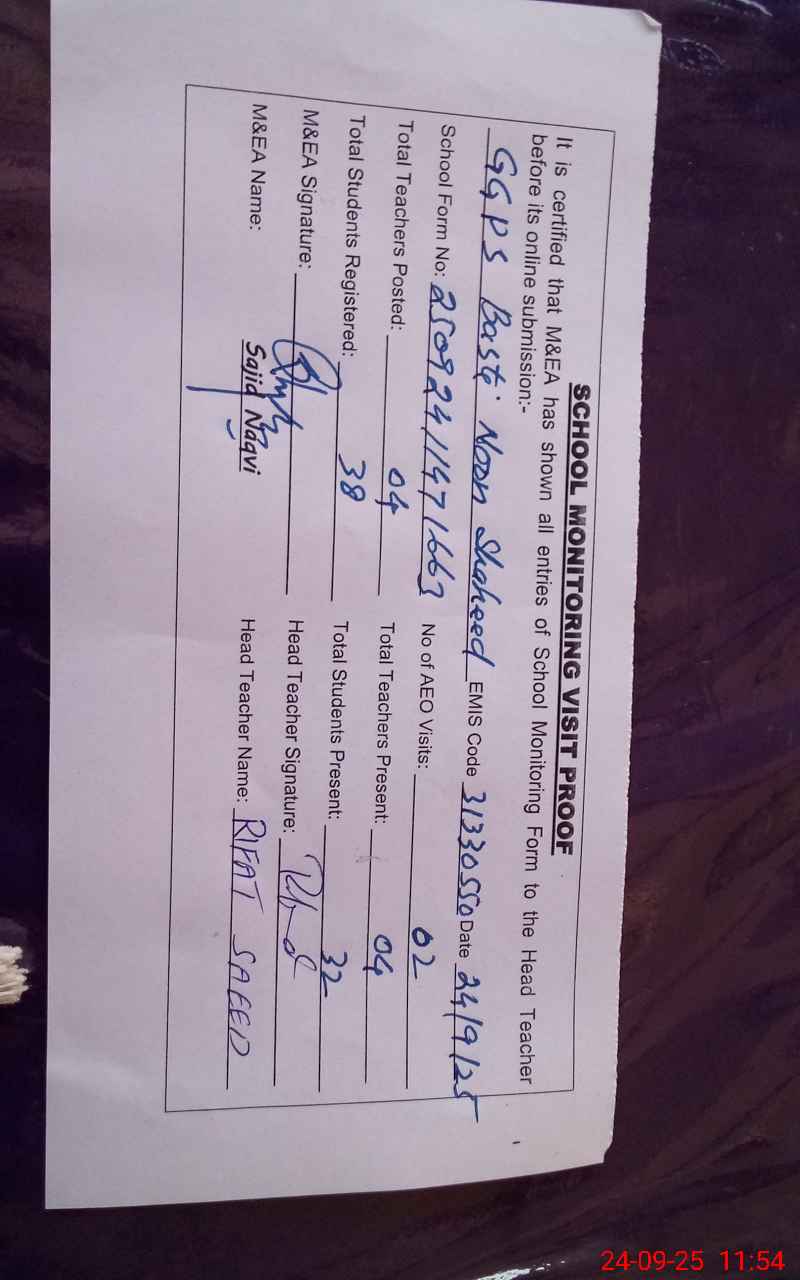 SCHOOL MONITORING VISIT PROOF
It is certified that M&EA has shown all entries of School Monitoring Form to the Head Teacher
before its online submission:-
GGPS Basti Noon Shaheed EMIS Code 31330550 Date 24/9/25
School Form No: 25092411471663 No of AEO Visits: 02
Total Teachers Posted: 04 Total Teachers Present: 04
Total Students Registered: 38 Total Students Present: 32
M&EA Signature: Head Teacher Signature:
M&EA Name: Sajid Naqvi Head Teacher Name: RIFAT SAEED
24-09-25 11:54